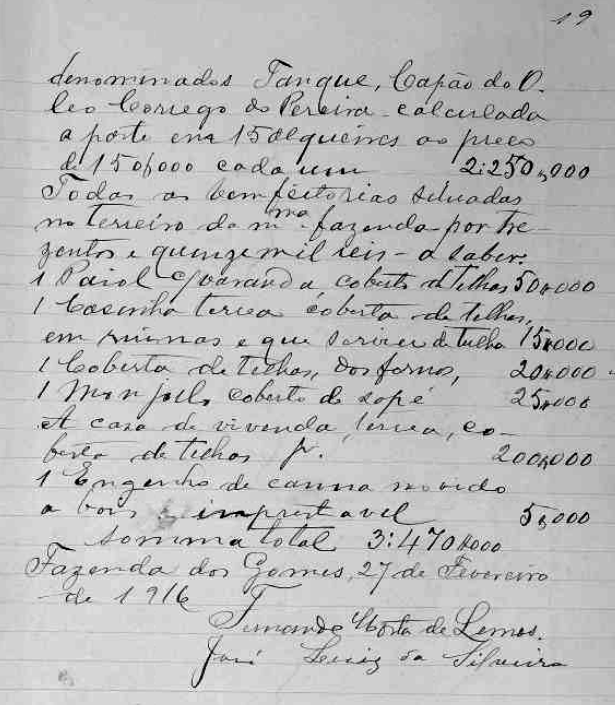 19
denominados Tanque, Capão do O.
leo Corrego do Pereira calculada
a parte em 15 alqueires ao preço
de 150$000 cada um 2:250$000
Todas as bemfeitorias situadas
no terreiro da m.ma fazenda por tre-
zentos e quinze mil reis - a saber:
1 Paiol c/varanda, coberto de telhas 50$000
1 Casinha terrea coberta de telhas,
em ruinas e que serviu de tulha 15$000
1 Coberta de telhas, dos fornos, 20$000
1 Monjollo coberto de sapé 25$000
A casa de vivenda, terrea, co-
berta de telhas pr. 200$000
1 Engenho de canna movido
a bois e imprestavel 5$000
Somma total 3:470$000
Fazenda dos Gomes, 27 de Fevereiro
de 1916
de Lemos.
José Luiz da Silveira